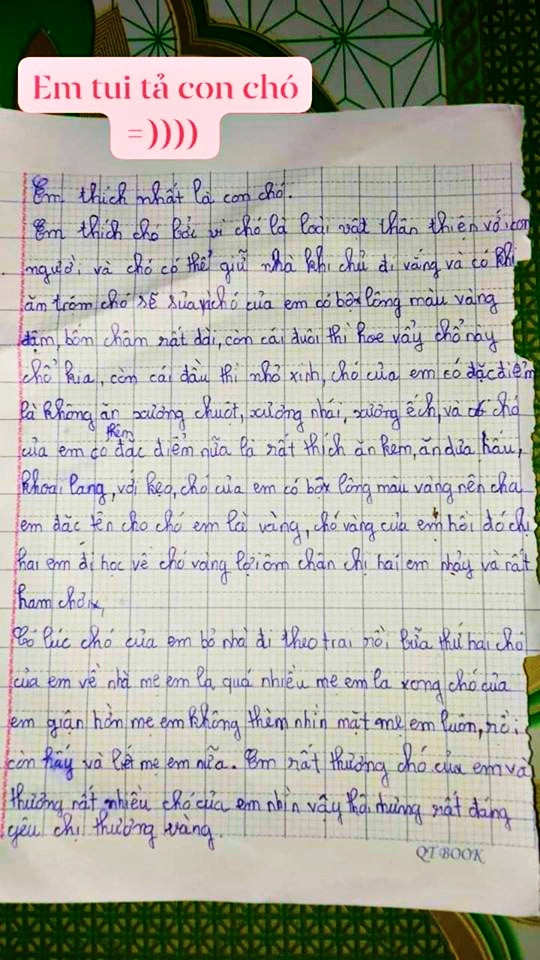 Em tui tả con chó
=))))
Em thích nhất là con chó.
Em thích chó bởi vì chó là loài vật thân thiện với con
người và chó có thể giữ nhà khi chủ đi vắng và có khi
ăn trộm chó sẽ sủa chó của em có bộ lông màu vàng
đậm, bốn chân rất dài, còn cái đuôi thì hoe vẩy chổ này
chổ kia, còn cái đầu thì nhỏ xinh, chó của em có đặc điểm
là không ăn xương chuột, xương nhái, xương ếch, và chó
của em có thêm đặc điểm nữa là rất thích ăn kem, ăn dưa hấu,
khoai lang, với kẹo, chó của em có bộ lông màu vàng nên cha
em đặc tên cho chó em là vàng, chó vàng của em hồi đó chị
hai em đi học về chó vàng lợi ôm chân chị hai em nhảy và rất
ham chơi,
Có lúc chó của em bỏ nhà đi theo trai rồi bữa thứ hai chó
của em về nhà mẹ em la, quá nhiều mẹ em la xong chó của
em giận hờn mẹ em không thèm nhìn mặt mẹ em luôn, rồi
còn háy và liếc mẹ em nữa. Em rất thương chó của em và
thương rất nhiều chó của em nhìn vậy thôi nhưng rất đáng
yêu chị thương vàng.
QT BOOK